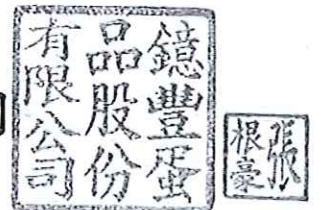 鐿豐蛋
品股份
有限公司
張
根豪